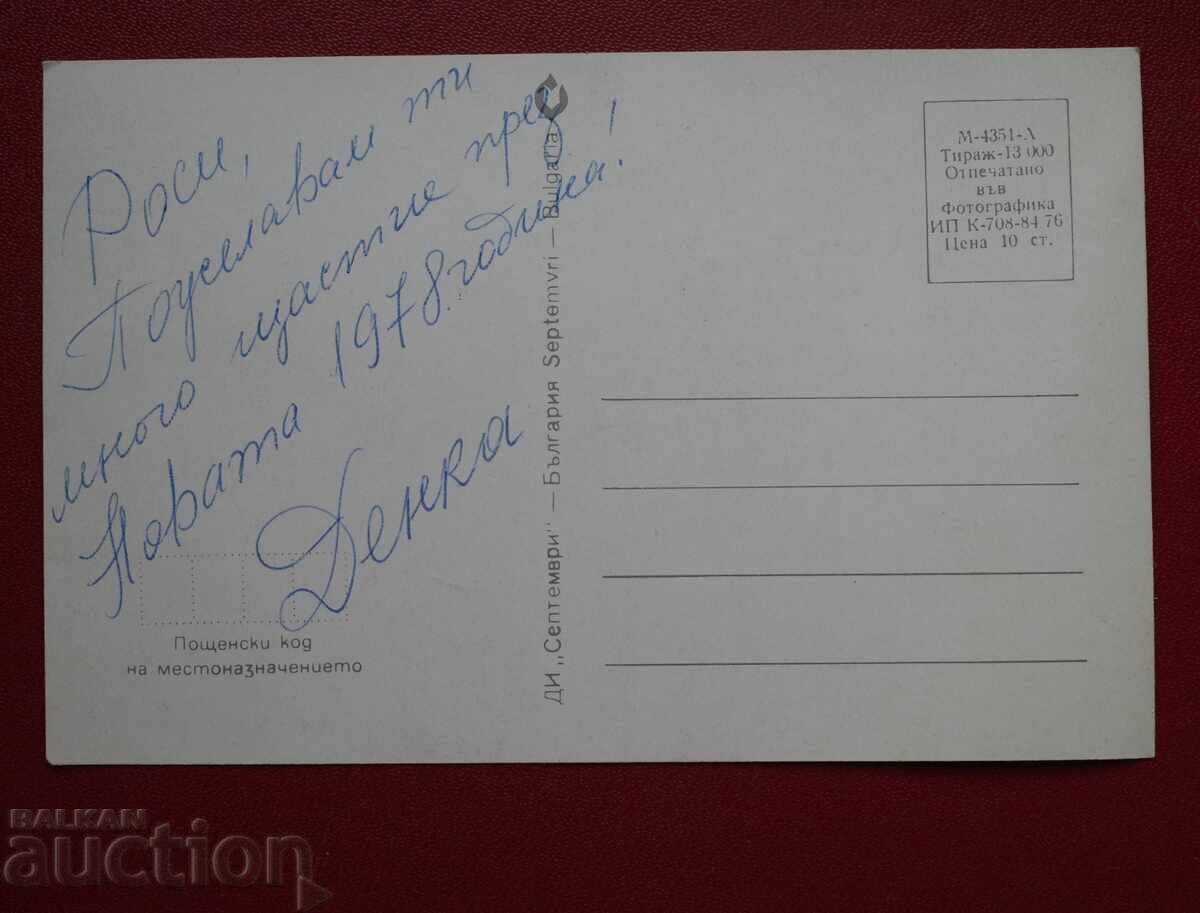 Роси,
Пожелавам ти
много щастие през
Новата 1978 година!
Денка
Пощенски код
на местоназначението
ДИ „Септември" — България Septemvri — Bulgaria
М-4351-А
Тираж-13 000
Отпечатано
във
Фотографика
ИП К-708-84 76
Цена 10 ст.
BALKAN
auction